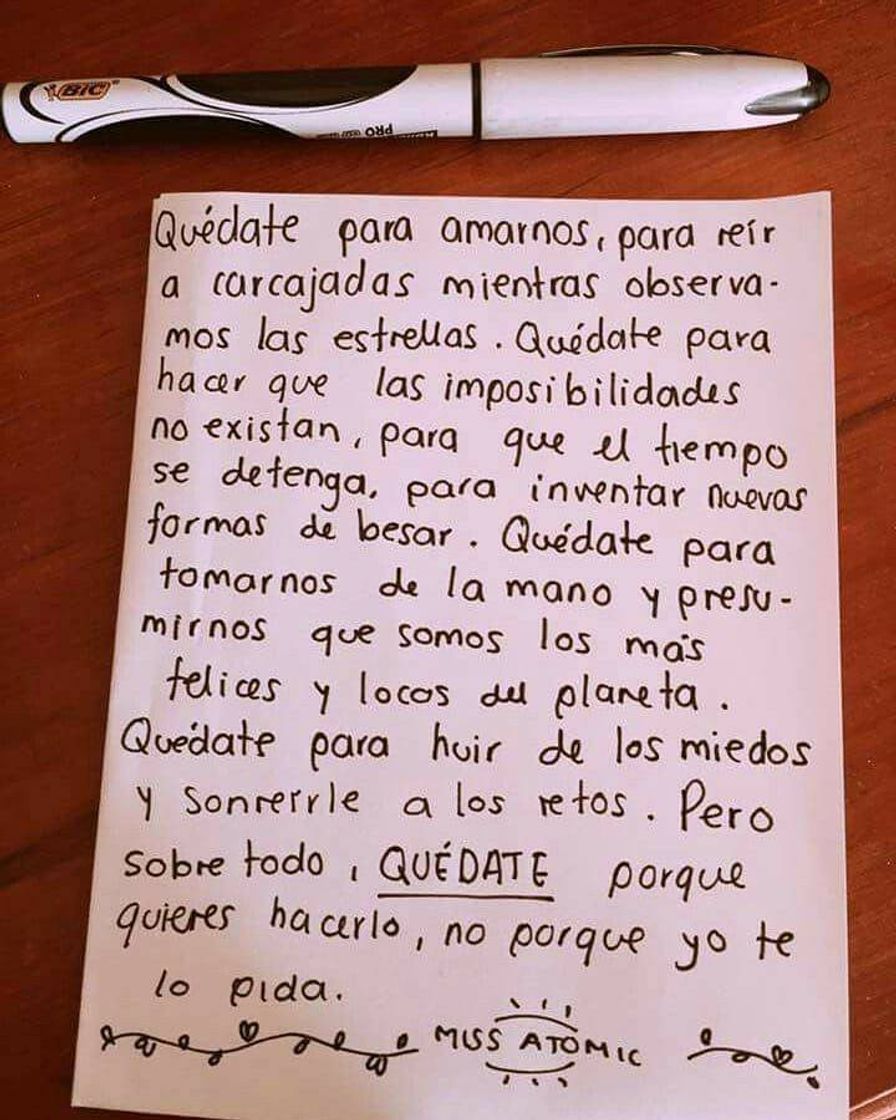 BIC
PRO
Quédate para amarnos, para reír
a carcajadas mientras observa-
mos las estrellas. Quédate para
hacer que las imposibilidades
no existan, para que el tiempo
se detenga, para inventar nuevas
formas de besar. Quédate para
tomarnos de la mano y presu-
mirnos que somos los más
felices y locos del planeta.
Quédate para huir de los miedos
y sonreírle a los retos. Pero
sobre todo, QUÉDATE porque
quieres hacerlo, no porque yo te
lo pida.
MISS ATOMIC